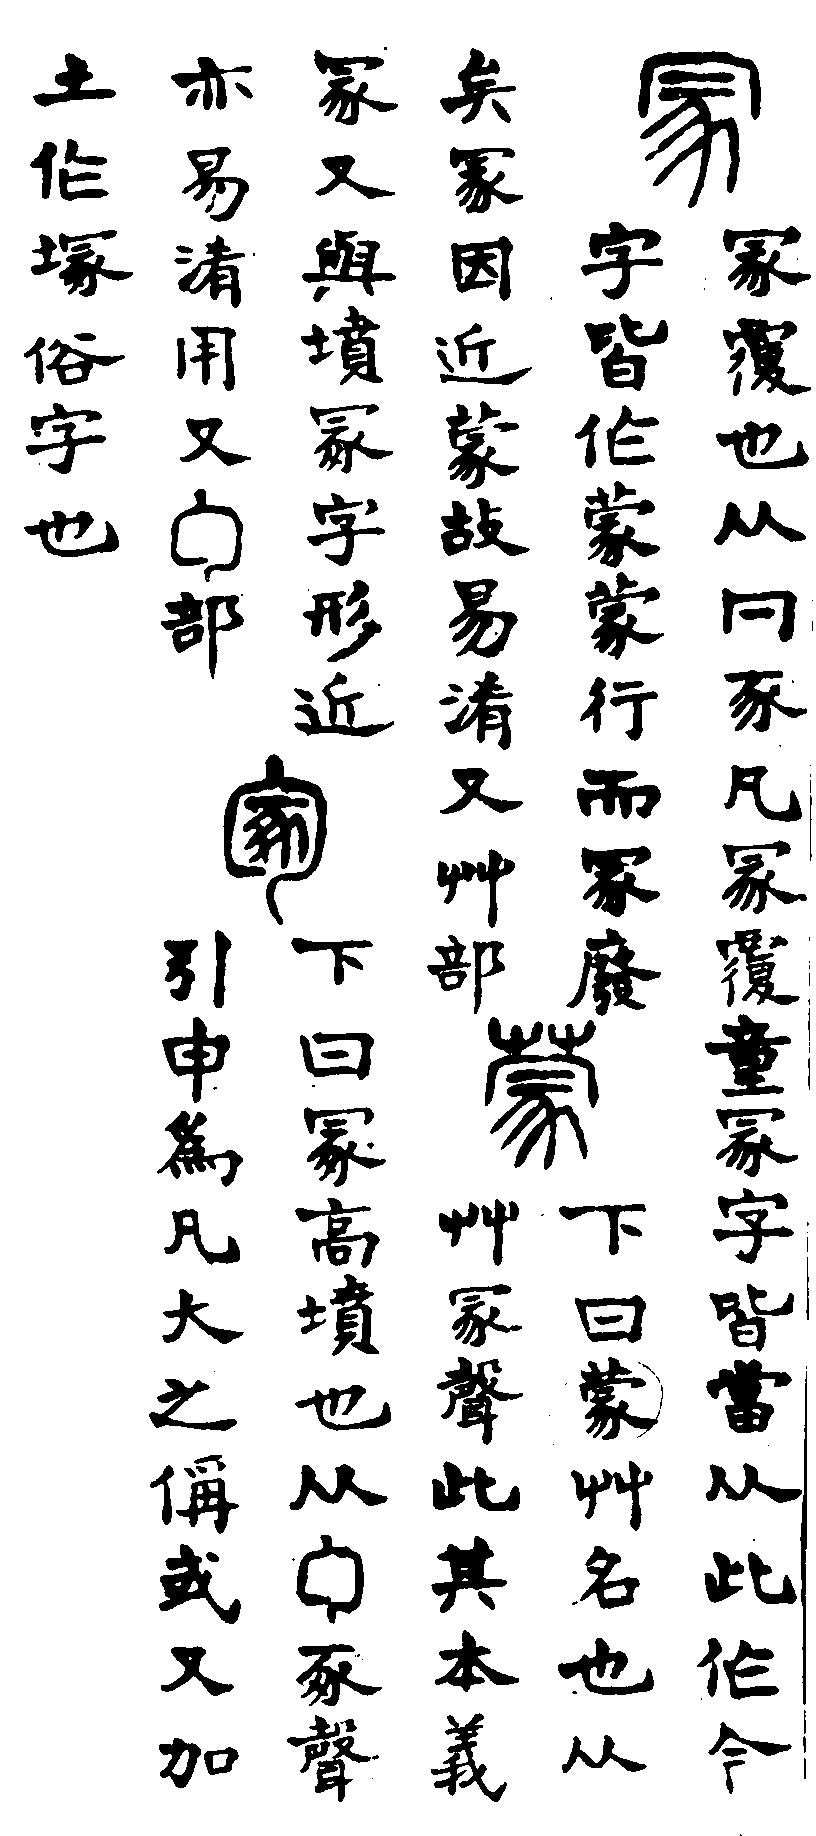 冡
冡覆也从冃豕凡冡覆童冡字皆當从此作今
字皆作蒙蒙行而冡廢
矣冡因近蒙故易淆又艸部
蒙
下曰蒙艸名也从
艸冡聲此其本義
冡又與墳冢字形近
亦易淆用又勹部
冢
下曰冢高墳也从勹豖聲
引申爲凡大之偁或又加
土作塚俗字也